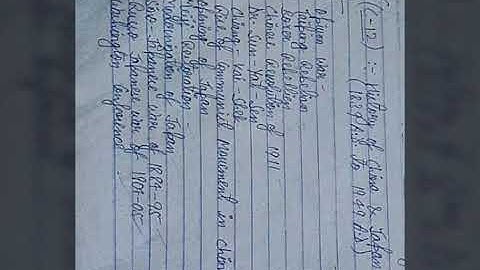 (C-12) :- History of China & Japan
(1839 A.D to 1949 A.D)
Opium war -
Taiping Rebellion
Boxer Rebellion
Chinese Revolution of 1911
Dr. Sun-Yat-Sen
Chiang Kai-Shek
Rise of Communist Movement in Chin
opening of Japan
Restoration -
Modernization of Japan
Sino-Japanese war of 1894-95
Russo Japanese war of 1904-05
Washington Conference